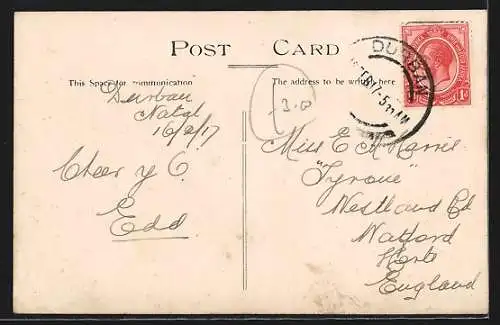 POST CARD
This Space for communication
The address to be written here
DURBAN
FEB 17-5
AM
1d
3.0
Durban
Natal
16/2/17
Cheer y O.
Edd
Miss E M Harris
"Tyrone"
Westland Rd
Watford
Herts
England